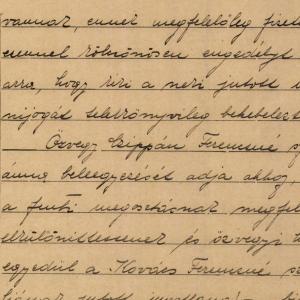 vannak, ennek megfelelőleg fizet
ennek kölcsönösen engedélyt
arra, hogy kiki a neki jutott
nijogát telekkönyvileg bekebelezt
Özvegy Czippán Ferencné
Anna beleegyezését adja ahhoz,
a fenti megosztásnak megfel
elkülönittessenek és özvegyi
egyedül a Kovács Ferencné
jutott